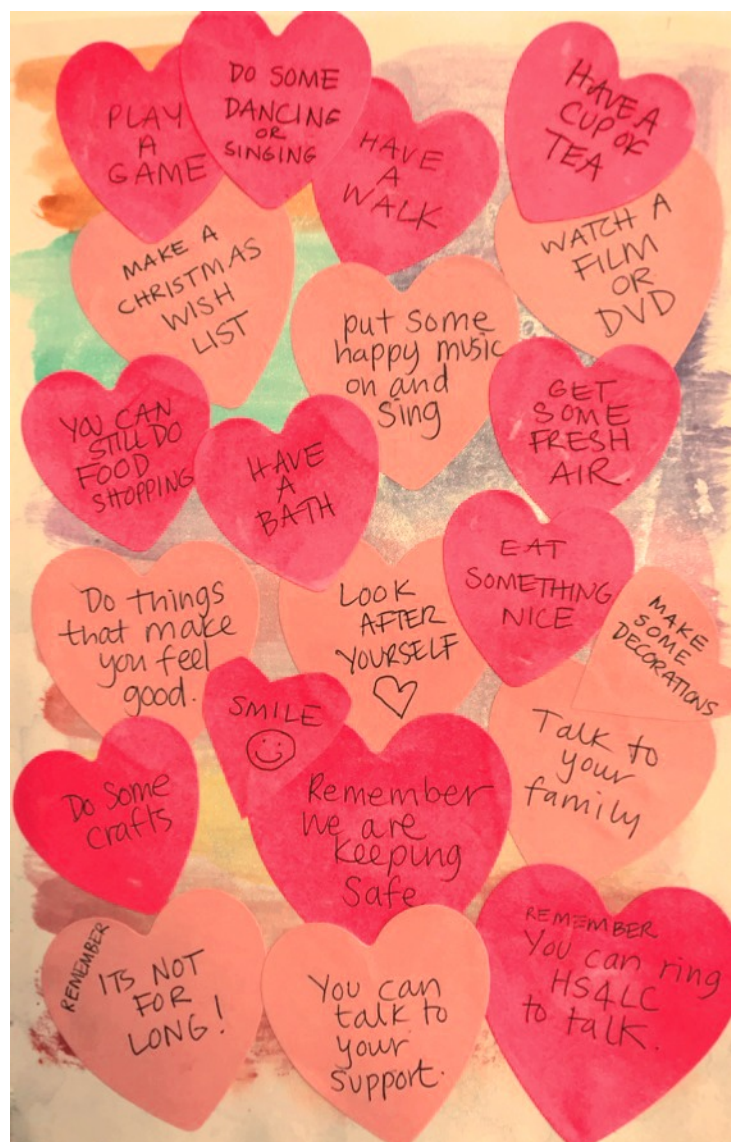 PLAY
A
GAME
DO SOME
DANCING
OR
SINGING
HAVE
A
WALK
HAVE A
CUP OF
TEA
MAKE A
CHRISTMAS
WISH
LIST
put some
happy music
on and
Sing
WATCH A
FILM
OR
DVD
YOU CAN
STILL DO
FOOD
SHOPPING
HAVE
A
BATH
GET
SOME
FRESH
AIR.
Do things
that make
you feel
good.
LOOK
AFTER
YOURSELF
EAT
SOMETHING
NICE
MAKE
SOME
DECORATIONS
SMILE
Do Some
Crafts
Remember
we are
keeping
Safe
Talk to
your
family
REMEMBER
ITS NOT
FOR
LONG!
You can
talk to
your
support.
REMEMBER
You can ring
HS4LC
to talk.